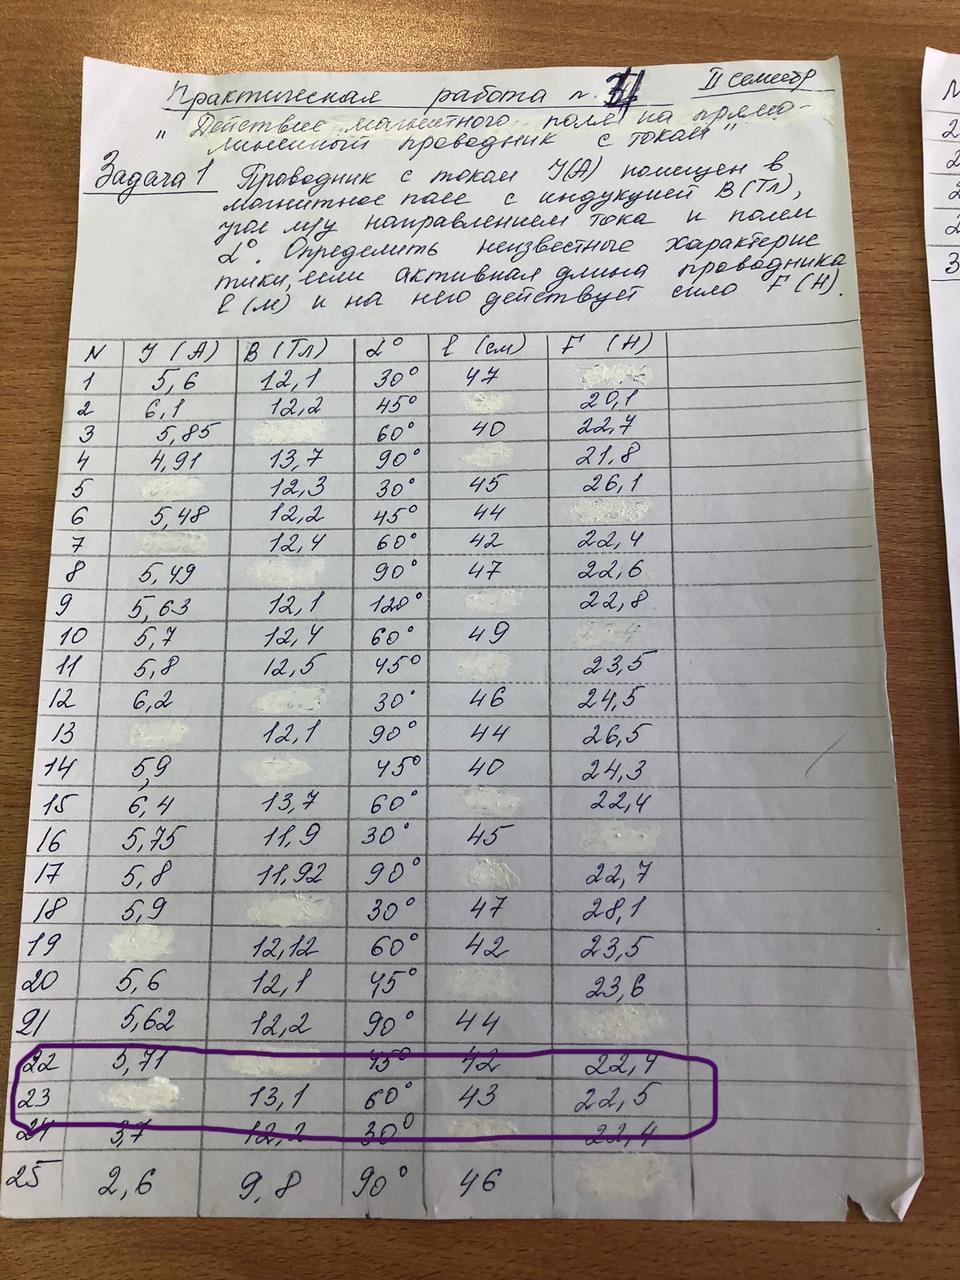 Практическая работа №
II семестр
"Действие магнитного поля на прямо-
линейный проводник с током"
Задача 1 Проводник с током I(А) помещен в
магнитное поле с индукцией В(Тл),
угол м/у направлением тока и полем
α°. Определить неизвестные характерис
тики, если активная длина проводника
l(м) и на него действует сила F(Н).
N I (А) В (Тл) α° l (см) F (Н)
1 5,6 12,1 30° 47
2 6,1 12,2 45° 20,1
3 5,85 60° 40 22,7
4 4,91 13,7 90° 21,8
5 12,3 30° 45 26,1
6 5,48 12,2 45° 44
7 12,4 60° 42 22,4
8 5,49 90° 47 22,6
9 5,63 12,1 120° 22,8
10 5,7 12,4 60° 49
11 5,8 12,5 45° 23,5
12 6,2 30° 46 24,5
13 12,1 90° 44 26,5
14 5,9 45° 40 24,3
15 6,4 13,7 60° 22,4
16 5,75 11,9 30° 45
17 5,8 11,92 90° 22,7
18 5,9 30° 47 28,1
19 12,12 60° 42 23,5
20 5,6 12,1 45° 23,6
21 5,62 12,2 90° 44
22 5,71 45° 42 22,4
23 13,1 60° 43 22,5
24 3,7 12,2 30° 22,4
25 2,6 9,8 90° 46